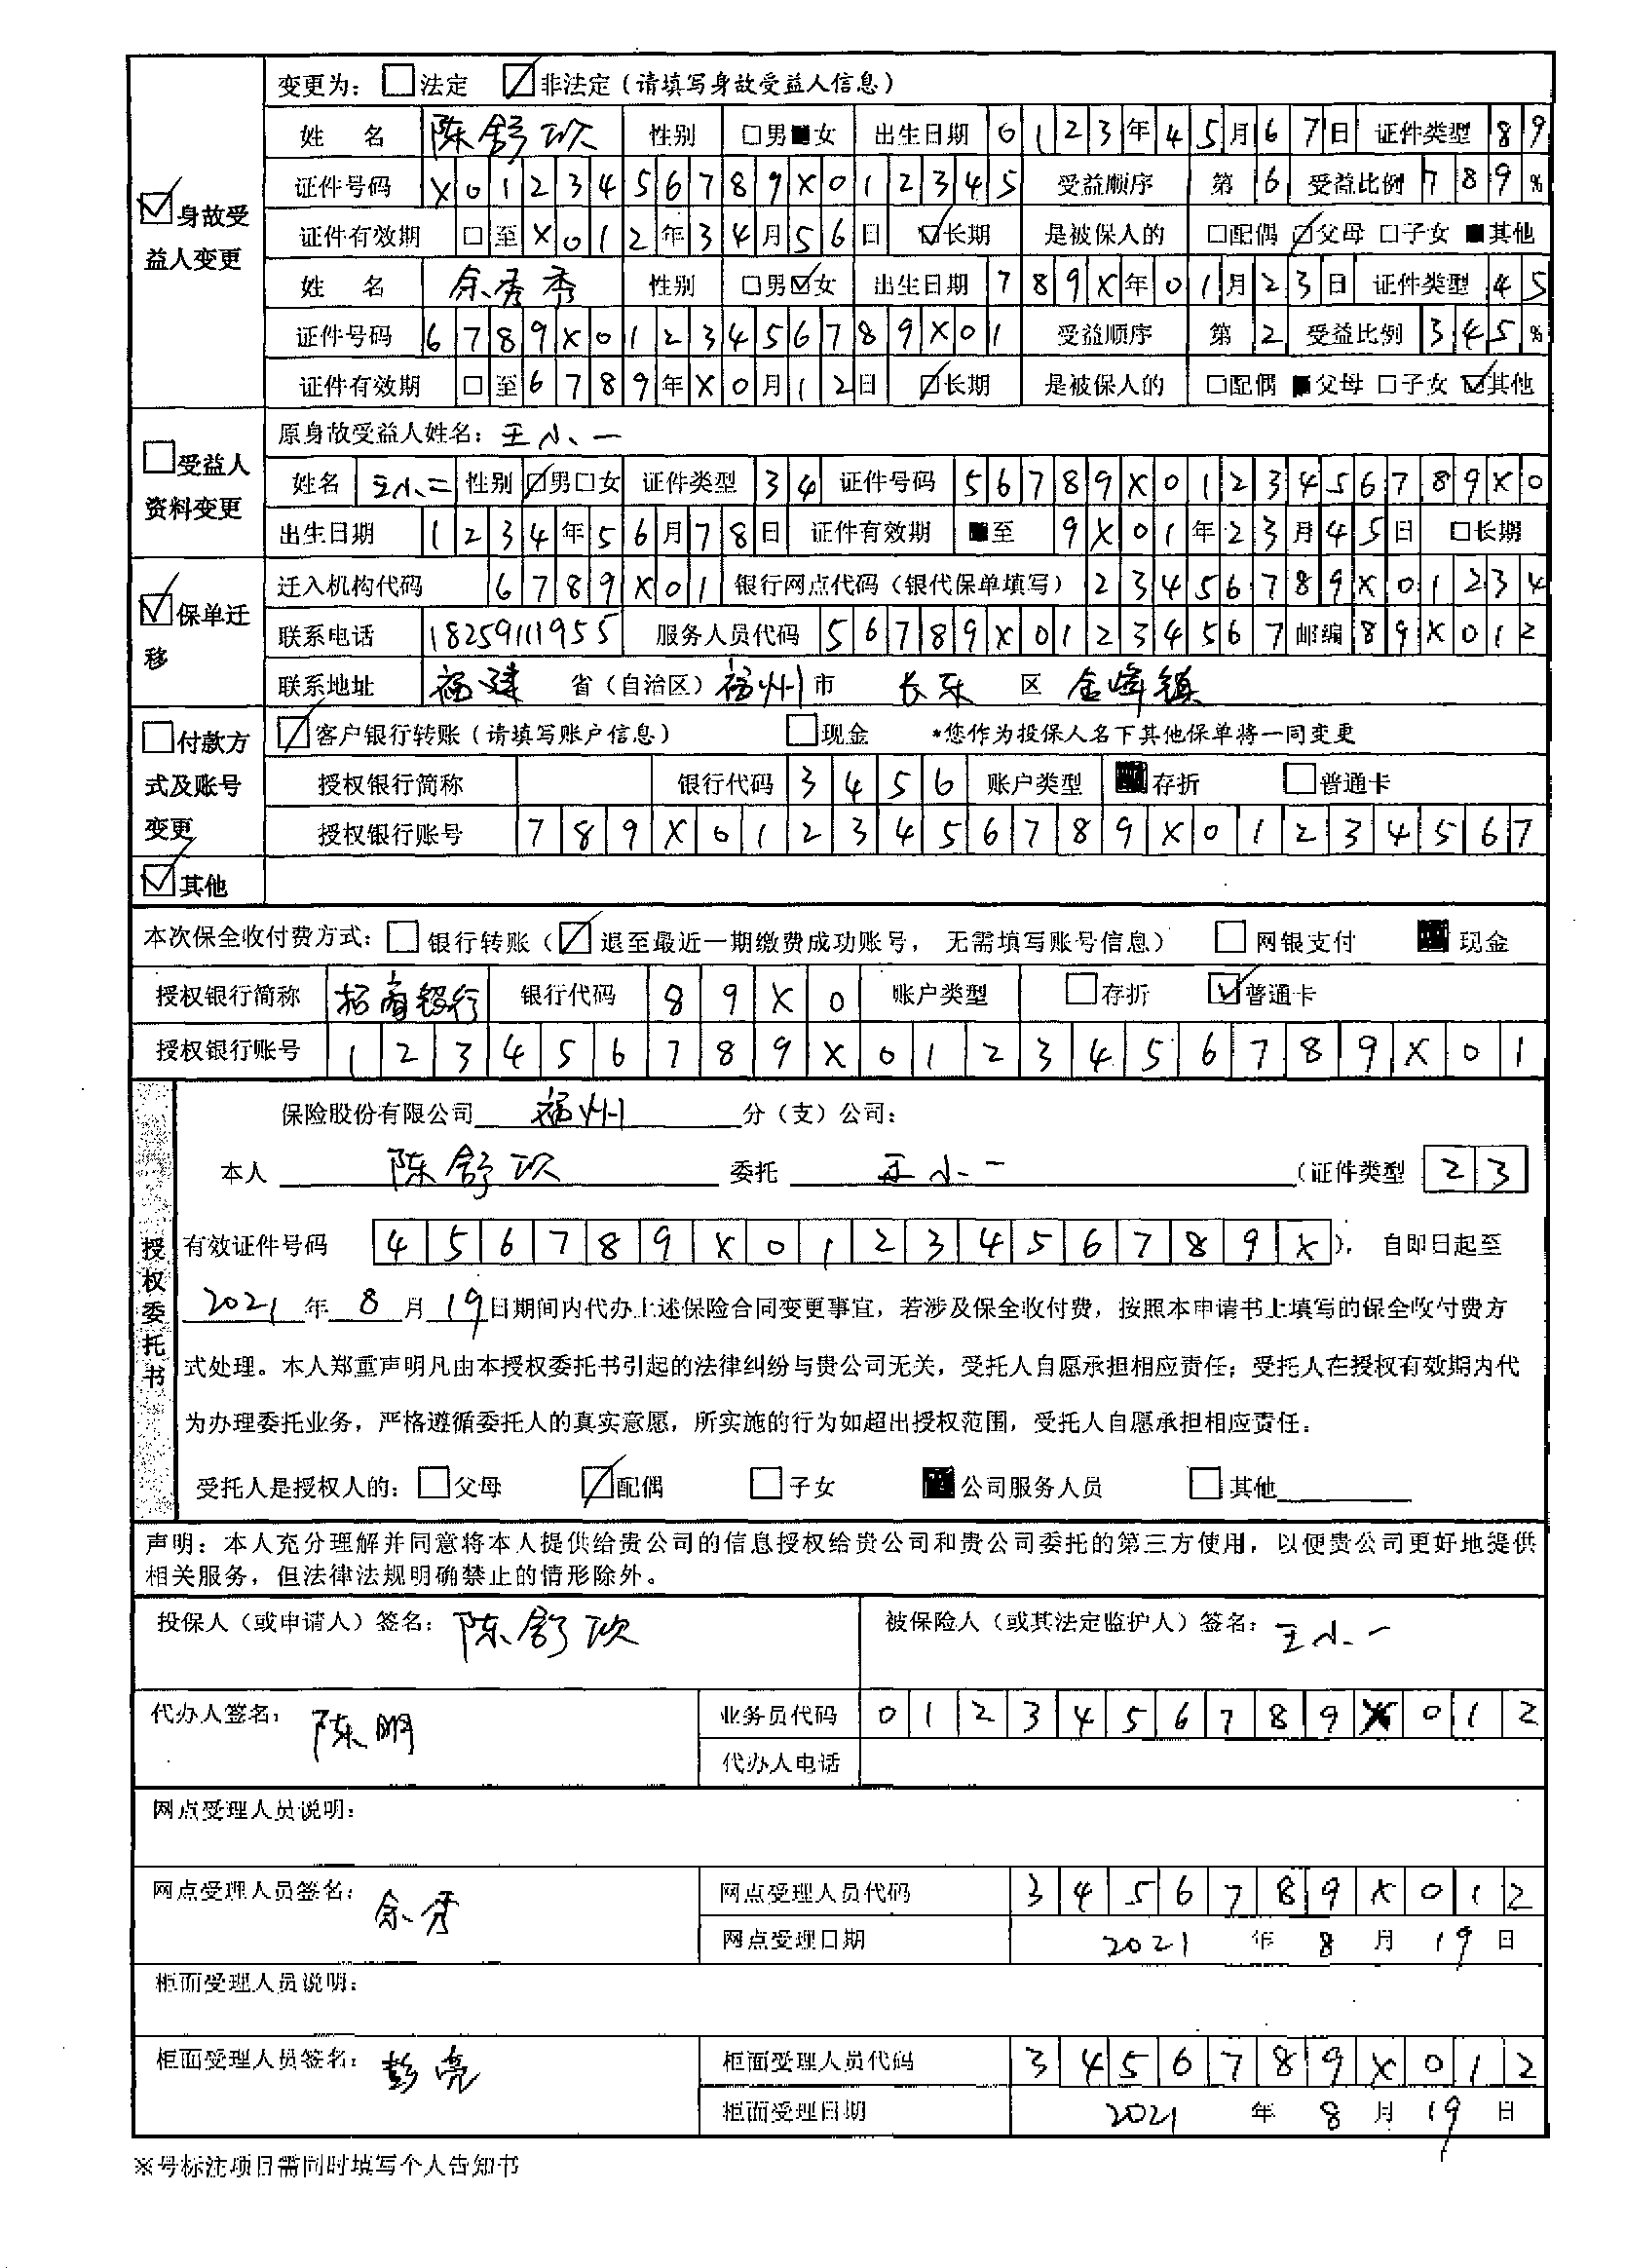 变更为：☐法定 ☑非法定（请填写身故受益人信息）
姓 名 陈舒欣 性别 ☐男■女 出生日期 0123年45月67日 证件类型 89
☑身故受益人变更
证件号码 X0123456789X012345 受益顺序 第6 受益比例 789%
证件有效期 ☐至X012年34月56日 ☑长期 是被保人的 ☐配偶☑父母☐子女■其他
姓 名 余秀秀 性别 ☐男☑女 出生日期 789X年01月23日 证件类型 45
证件号码 6789X0123456789X01 受益顺序 第2 受益比例 345%
证件有效期 ☐至6789年X0月12日 ☑长期 是被保人的 ☐配偶■父母☐子女☑其他
☐受益人资料变更
原身故受益人姓名：王小一
姓名 王小二 性别 ☑男☐女 证件类型 34 证件号码 56789X0123456789X0
出生日期 1234年56月78日 证件有效期 ■至 9X01年23月45日 ☐长期
☑保单迁移
迁入机构代码 6789X01 银行网点代码（银代保单填写）23456789X01234
联系电话 18259111955 服务人员代码 56789X01234567 邮编 89X012
联系地址 福建 省（自治区）福州 市 长乐 区 金峰镇
☐付款方式及账号变更
☑客户银行转账（请填写账户信息） ☐现金 *您作为投保人名下其他保单将一同变更
授权银行简称 银行代码 3456 账户类型 ■存折 ☐普通卡
授权银行账号 789X0123456789X01234567
☑其他
本次保全收付费方式：☐银行转账（☑退至最近一期缴费成功账号，无需填写账号信息） ☐网银支付 ■现金
授权银行简称 招商银行 银行代码 89X0 账户类型 ☐存折 ☑普通卡
授权银行账号 123456789X0123456789X01
授权委托书
保险股份有限公司 福州 分（支）公司：
本人 陈舒欣 委托 王小一 （证件类型 23
有效证件号码 456789X0123456789X ），自即日起至
2021 年 8 月 19 日期间内代办上述保险合同变更事宜，若涉及保全收付费，按照本申请书上填写的保全收付费方
式处理。本人郑重声明凡由本授权委托书引起的法律纠纷与贵公司无关，受托人自愿承担相应责任；受托人在授权有效期内代
为办理委托业务，严格遵循委托人的真实意愿，所实施的行为如超出授权范围，受托人自愿承担相应责任。
受托人是授权人的：☐父母 ☑配偶 ☐子女 ■公司服务人员 ☐其他
声明：本人充分理解并同意将本人提供给贵公司的信息授权给贵公司和贵公司委托的第三方使用，以便贵公司更好地提供
相关服务，但法律法规明确禁止的情形除外。
投保人（或申请人）签名：陈舒欣 被保险人（或其法定监护人）签名：王小一
代办人签名：陈明 业务员代码 0123456789X012
代办人电话
网点受理人员说明：
网点受理人员签名：余秀 网点受理人员代码 3456789X012
网点受理日期 2021 年 8 月 19 日
柜面受理人员说明：
柜面受理人员签名：彭亮 柜面受理人员代码 3456789X012
柜面受理日期 2021 年 8 月 19 日
※号标注项目需同时填写个人告知书